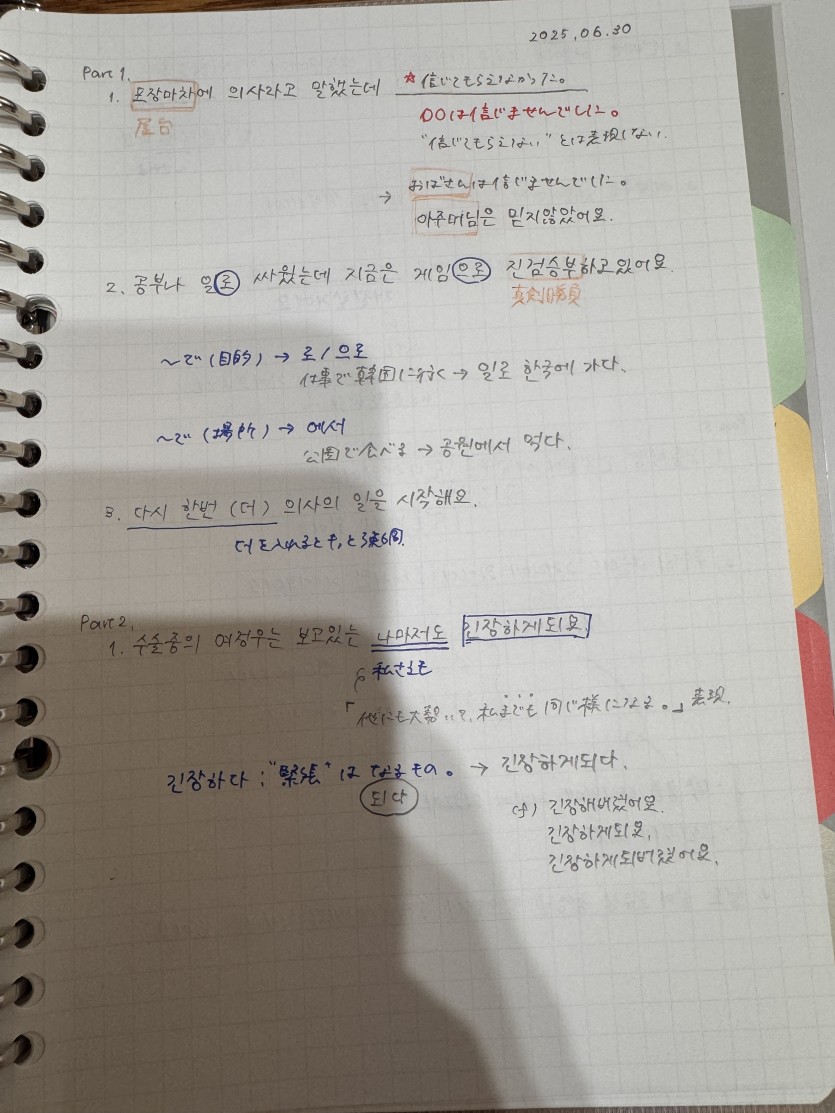 2025.06.30
Part 1.
1. 포장마차에 의사라고 말했는데 ☆信じてもらえなかった。
屋台
〇〇は信じませんでした。
"信じてもらえない"とは表現しない.
→ おばさんは信じませんでした。
아주머님은 믿지않았어요.
2. 공부나 일로 싸웠는데 지금은 게임으로 진검승부하고있어요.
真剣勝負
~で(目的) → 로/으로
仕事で韓国に行く → 일로 한국에 가다.
~で(場所) → 에서
公園で食べる → 공원에서 먹다.
3. 다시 한번 (더) 의사의 일을 시작해요.
더を入れるともっと強調.
Part 2.
1. 수술중의 여정우는 보고있는 나마저도 긴장하게되요.
私さえも
「他にも大勢いて、私までも同じ様になる。」表現.
긴장하다 : "緊張"は なるもの。 → 긴장하게되다.
되다
(よ) 긴장해버렸어요.
긴장하게되요.
긴장하게되버렸어요.